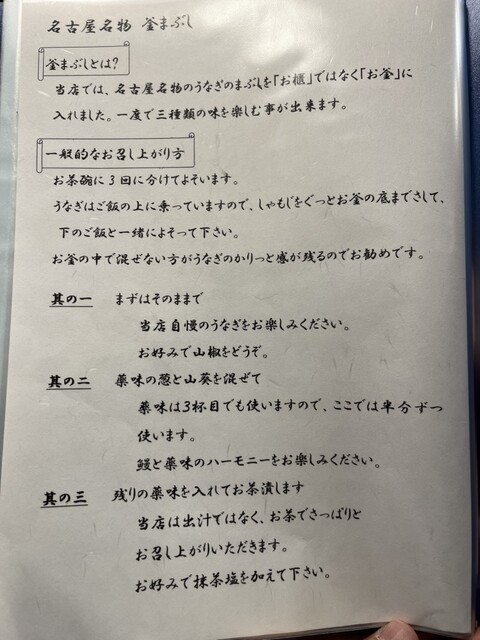 名古屋名物 釜まぶし
釜まぶしとは?
当店では、名古屋名物のうなぎのまぶしを「お櫃」ではなく「お釜」に
入れました。一度で三種類の味を楽しむ事が出来ます。
一般的なお召し上がり方
お茶碗に3回に分けてよそいます。
うなぎはご飯の上に乗っていますので、しゃもじをぐっとお釜の底までさして、
下のご飯と一緒によそって下さい。
お釜の中で混ぜない方がうなぎのかりっと感が残るのでお勧めです。
其の一 まずはそのままで
当店自慢のうなぎをお楽しみください。
お好みで山椒をどうぞ。
其の二 薬味の葱と山葵を混ぜて
薬味は3杯目でも使いますので、ここでは半分ずつ
使います。
鰻と薬味のハーモニーをお楽しみください。
其の三 残りの薬味を入れてお茶漬します
当店は出汁ではなく、お茶でさっぱりと
お召し上がりいただきます。
お好みで抹茶塩を加えて下さい。